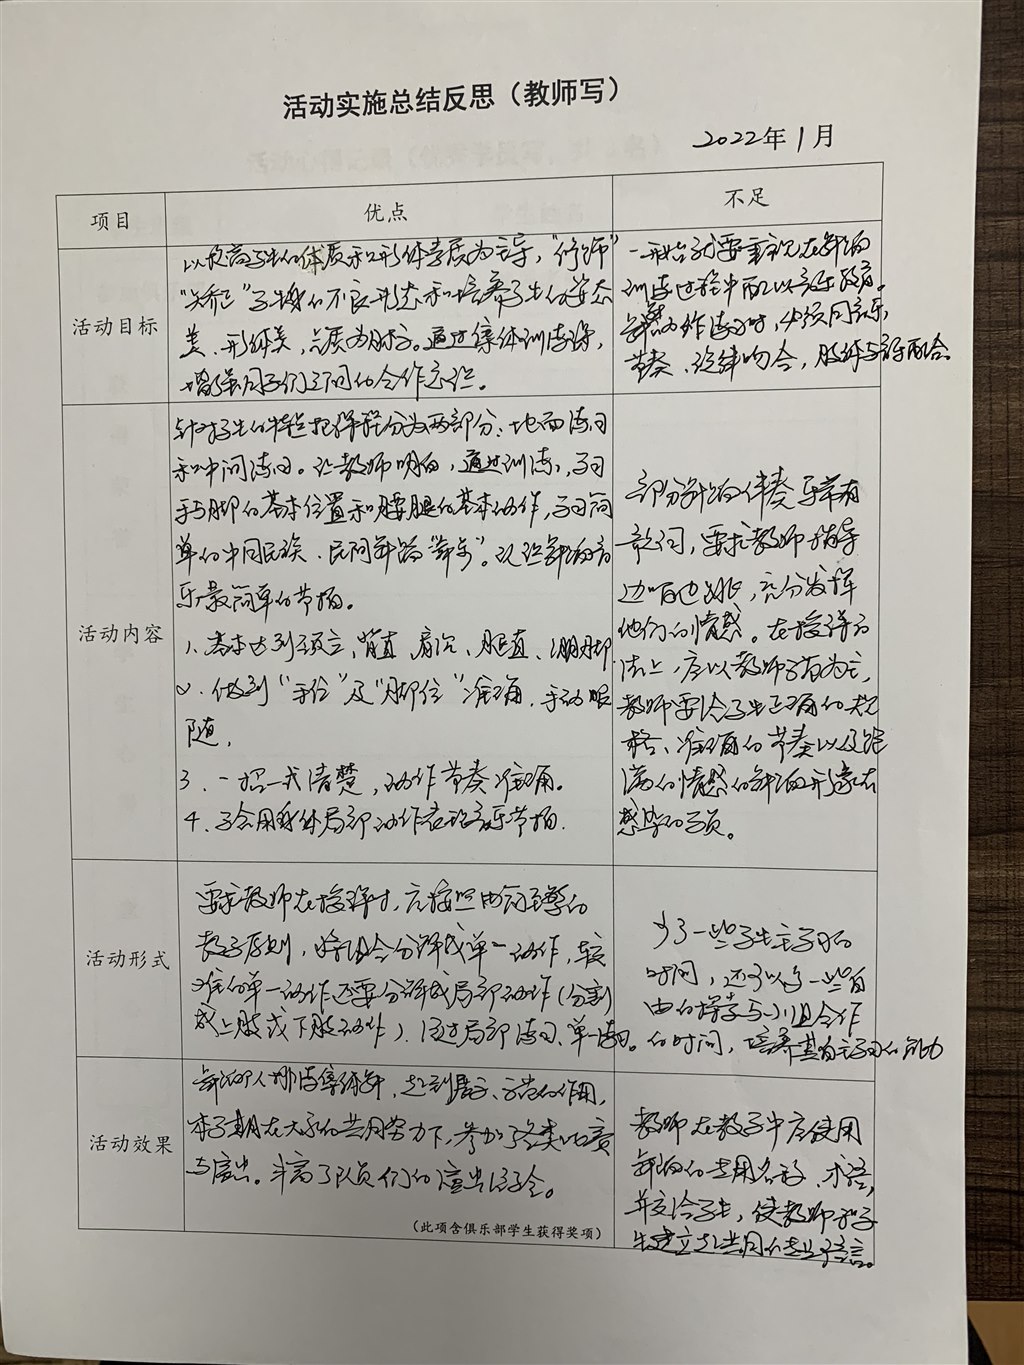 活动实施总结反思（教师写）
2022年1月
项目
优点
不足
活动目标
以提高学生的体质和形体素质为主导，"修饰"
"矫正"学生的不良形态和培养学生的姿态
美、形体美，气质为主。通过集体训练，
增强同学们之间的合作意识。
一开始就要重视在舞蹈
训练过程中配以音乐
动作练习时，必须同音乐
节奏、旋律吻合，肢体与音乐配合
活动内容
针对学生的特点把课程分为两部分：地面练习
和中间练习。让教师明白，通过训练，学习
手与脚的基本位置和腰腿的基本动作，学习简
单的中国民族、民间舞蹈"舞步"。认识舞蹈音
乐最简单的节拍。
1、基本达到颈立、背直、肩沉、腿直、绷脚
2、做到"手位"及"脚位"准确，手动眼
随，
3、一招一式清楚，动作节奏准确。
4、学会用身体局部动作表现音乐节拍.
部分舞蹈伴奏乐带有
歌词，要求教师指导
边唱边跳，充分发挥
他们的情感。在授课方
法上，应以教师为主，
教师要给学生正确的规
格、准确的节奏以及饱
满的情感的舞蹈形象去
感染学员。
活动形式
要求教师在授课时，应按照由简到繁的
教学原则，将组合分解成单一动作，较
难的单一动作还要分解成局部动作（分割
成上肢或下肢动作），通过局部练习、单一练习。
少了一些学生主学习的
时间，还可以多一些自
由的探索与小组合作
的时间，培养其自主学习的能力
活动效果
舞蹈人排练集体舞，起到展示、示范的作用，
本学期在大家的共同努力下，参加了各类比赛
与演出。丰富了队员们的演出经验。
（此项含俱乐部学生获得奖项）
教师在教学中应使用
舞蹈的专用名称、术语，
并交给学生，使教师和学
生建立起共同的专业语言。